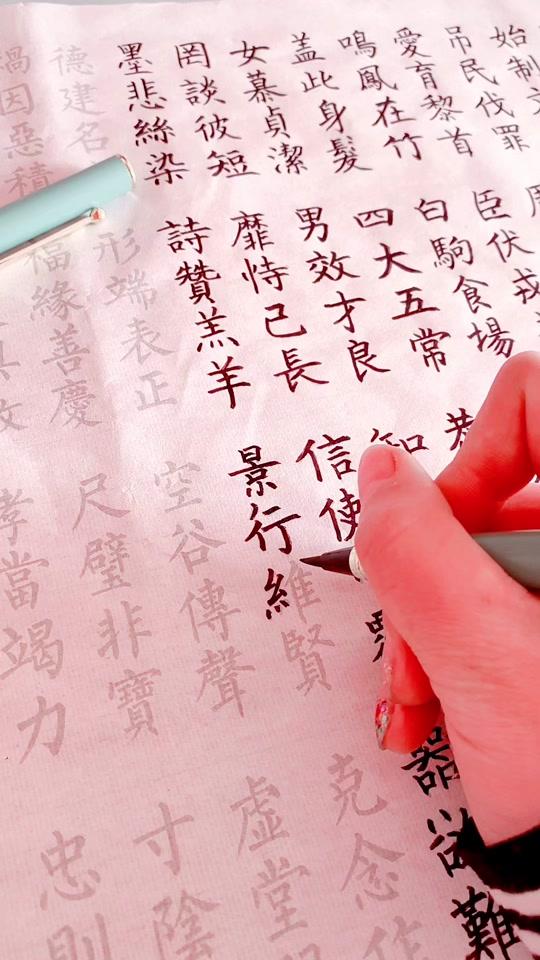 始制文
吊民伐罪
愛育黎首 臣伏戎
鳴鳳在竹 白駒食場
盖此身髮 四大五常 恭
女慕貞潔 男效才良 知
罔談彼短 靡恃己長 信使 器欲難
墨悲絲染 詩贊羔羊 景行維賢 克念作
德建名 形端表正 空谷傳聲 虛堂
禍因惡積 福緣善慶 尺璧非寶 寸陰
孝當竭力 忠則